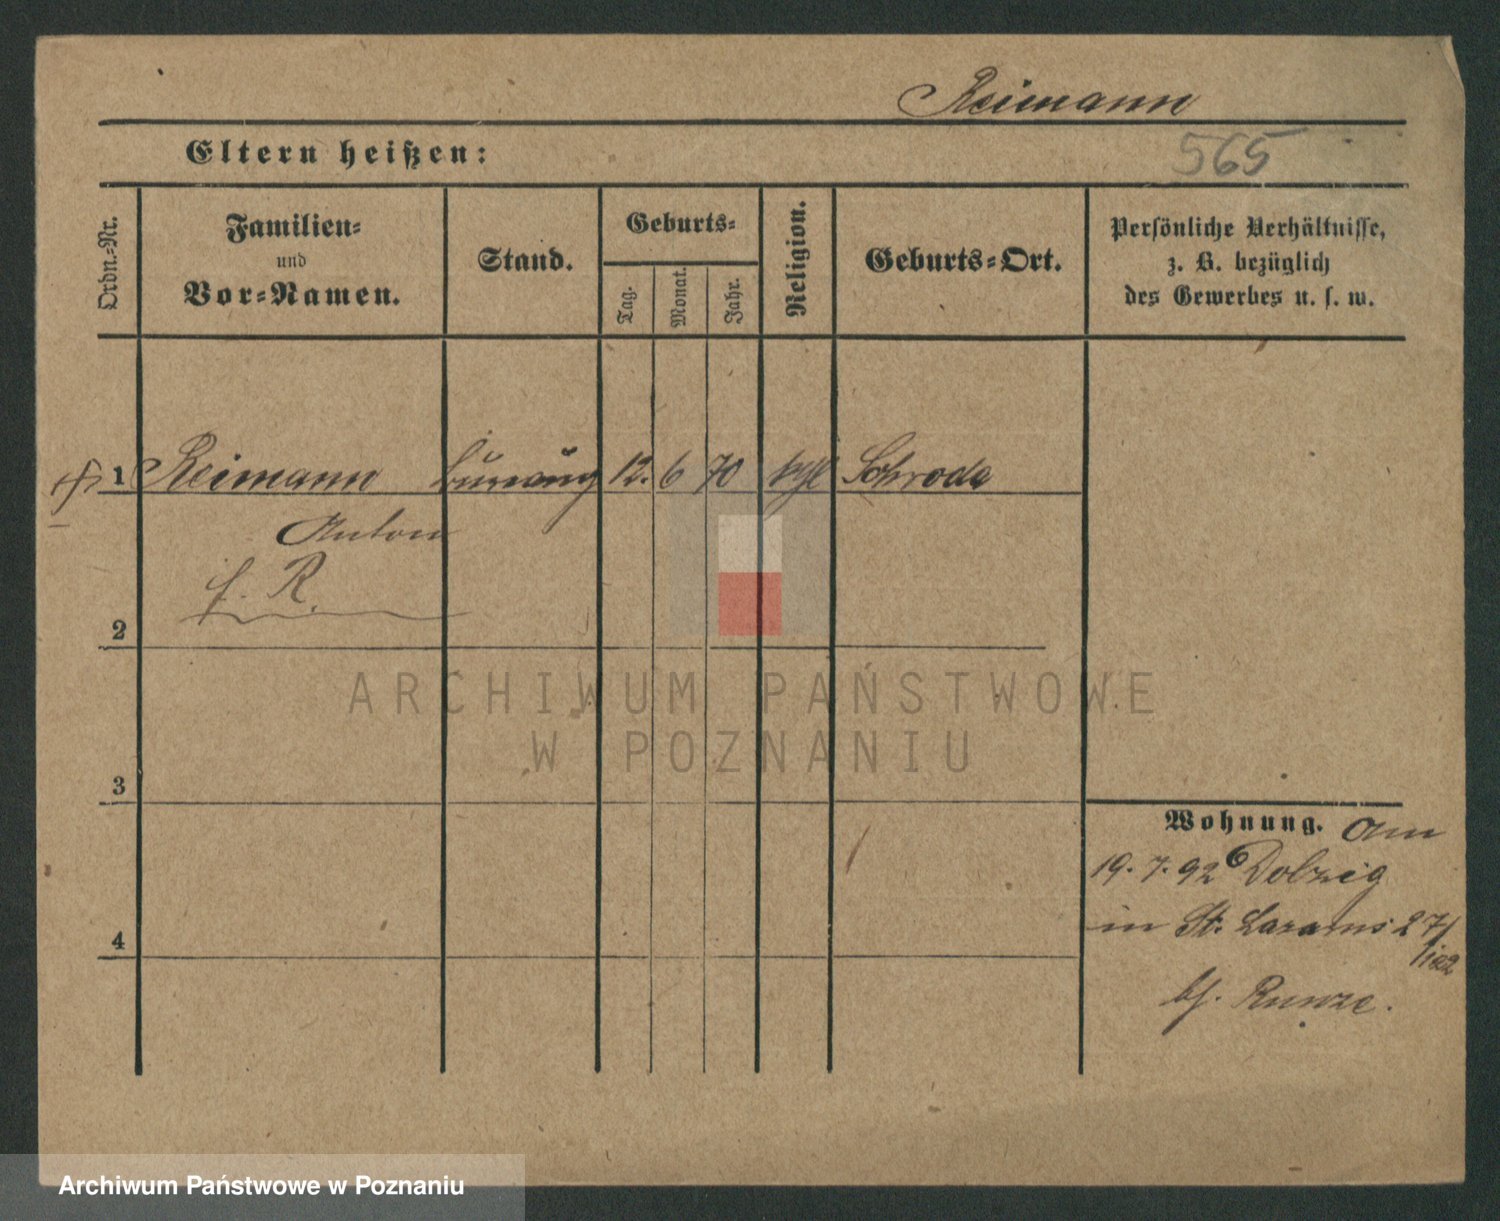 Reimann
565
Eltern heißen:
Ordn.-Nr.
Familien-
und
Vor-Namen.
Stand.
Geburts-
Tag.
Monat.
Jahr.
Religion.
Geburts-Ort.
Persönliche Verhältnisse,
z. B. bezüglich
des Gewerbes u. s. w.
1 Reimann 12. 6 70 Schroda
Anton
f. R.
2
ARCHIWUM PAŃSTWOWE
W POZNANIU
3
Wohnung. Am
19. 7. 92 Dolzig
in St. Lazarus 27/
4
bf. Runze.
Archiwum Państwowe w Poznaniu